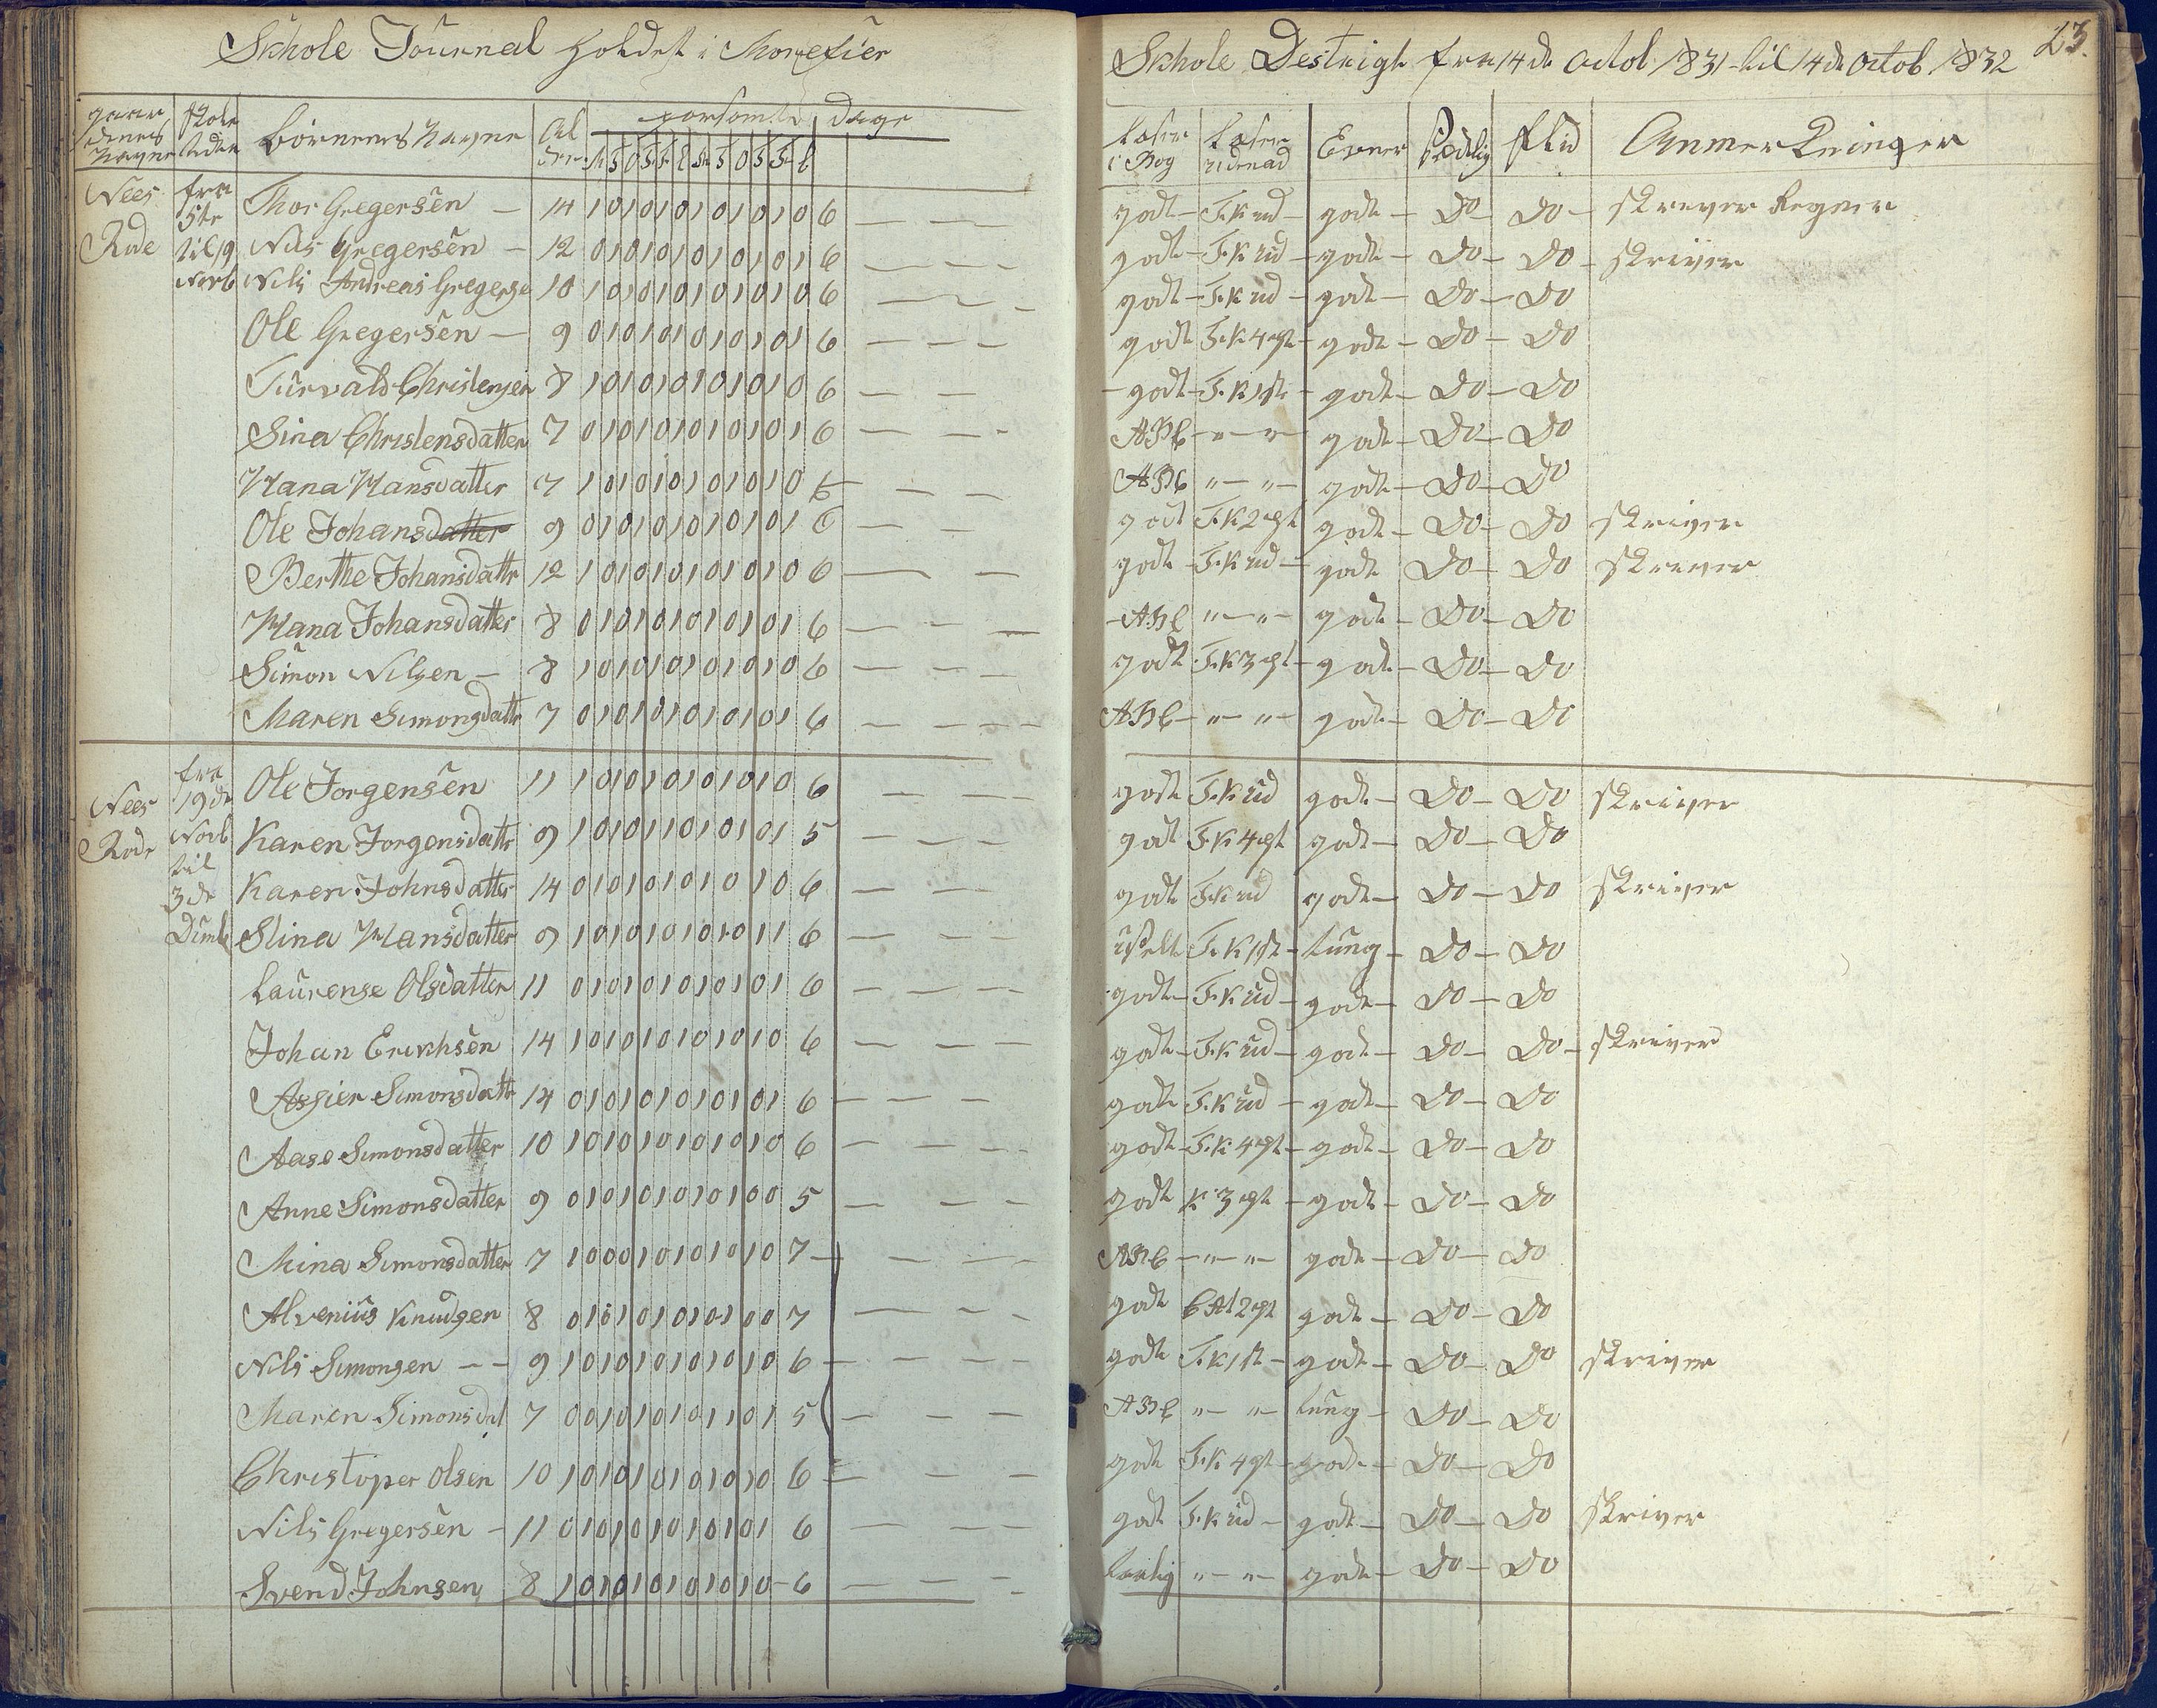 Skhole Journal holdet i Morefier
Skhole Destrigt fra 14de octob 1831 til 14de octob 1832
23.
gaardenes Nayne
skole tider
Børnenes Nayne
Alder
forsømte dage
Læser i Bog
Læser udenad
Evner
Sædelig
flid
Anmerkninger
Nees Rode fra 5te til 19 Novb
Thor Gregersen — 14 1 0 1 0 1 0 1 0 1 0 1 0 6 godt — F.K ud — godt — Do — Do — skrever Regner
Nils Gregersen — 12 0 1 0 1 0 1 0 1 0 1 0 1 6 godt — F.K ud — godt — Do — Do — skriver
Nils Andreas Gregerse 10 1 0 1 0 1 0 1 0 1 0 1 0 6 godt — F.K ud — godt — Do — Do
Ole Gregersen — 9 0 1 0 1 0 1 0 1 0 1 0 1 6 godt F.K 4 pt — godt — Do — Do
Turvald Christensen 8 1 0 1 0 1 0 1 0 1 0 1 0 6 — godt — F.K 1st — godt — Do — Do
Sina Christensdatter 7 0 1 0 1 0 1 0 1 0 1 0 1 6 ABC — " — " — godt — Do — Do
Hana Hansdatter 7 1 0 1 0 1 0 1 0 1 0 1 0 6 ABC " — " — godt — Do — Do
Ole Johansdatter 9 0 1 0 1 0 1 0 1 0 1 0 1 6 godt F.K 2 pt godt — Do — Do skriver
Berthe Johansdattr 12 1 0 1 0 1 0 1 0 1 0 1 0 6 godt — F.K ud — godt Do — Do skrever
Hana Johansdatter 8 0 1 0 1 0 1 0 1 0 1 0 1 6 — ABC " — " — godt — Do — Do
Simon Nilsen — 8 1 0 1 0 1 0 1 0 1 0 1 0 6 godt F.K 3 pt — godt — Do — Do
Maren Simonsdattr 7 0 1 0 1 0 1 0 1 0 1 0 1 6 ABC — " — " — godt — Do — Do
Nees Rode fra 19de Novb til 3de Dcmb
Ole Jorgensen 11 1 0 1 0 1 0 1 0 1 0 1 0 6 godt F.K ud godt — Do — Do skriver
Karen Jorgensdattr 9 1 0 1 0 1 1 0 1 0 1 0 1 5 godt F.K 4 pt godt — Do — Do
Karen Johnsdatter 14 0 1 0 1 0 1 0 1 0 1 0 6 godt F.K ud godt — Do — Do skriver
Stina Hansdatter 9 1 0 1 0 1 0 1 0 1 0 1 1 6 uselt F.K 1st — tung — Do — Do
Laurense Olsdatter 11 0 1 0 1 0 1 0 1 0 1 0 1 6 godt — F.K ud — godt — Do — Do
Johan Erikhsen 14 1 0 1 0 1 0 1 0 1 0 1 0 6 godt — F.K ud — godt — Do — Do — skriver
Assier Simonsdattr 14 0 1 0 1 0 1 0 1 0 1 0 1 6 godt F.K ud — godt — Do — Do
Aase Simonsdatter 10 1 0 1 0 1 0 1 0 1 0 1 0 6 godt — F.K 4 pt — godt — Do — Do
Anne Simonsdatter 9 0 1 0 1 0 1 0 1 0 1 0 0 5 godt K 3 pt — godt — Do — Do
Mina Simonsdatter 7 1 0 0 0 1 0 1 0 1 0 1 0 7 ABC — " — " — godt — Do — Do
Alvenius Knudsen 8 0 1 0 1 0 1 0 1 0 1 0 0 7 godt 2 pt godt — Do — Do
Nils Simonsen — 9 1 0 1 0 1 0 1 0 1 0 1 0 6 godt F.K 1st — godt — Do — Do skriver
Maren Simonsdat 7 0 0 1 0 1 0 1 0 1 1 0 1 5 ABC " — " — tung — Do — Do
Christoper Olsen 10 1 0 1 0 1 0 1 0 1 0 1 0 6 godt F.K 4 pt — godt — Do — Do
Nils Gregersen — 11 0 1 0 1 0 1 0 1 0 1 0 1 6 godt F.K ud — godt — Do — Do skriver
Svend Johnsen 8 1 0 1 0 1 0 1 0 1 0 1 0 — 6 " — " — godt — Do — Do